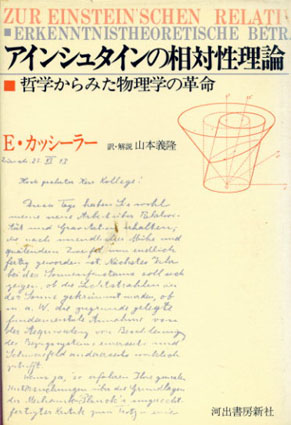 ZUR EINSTEIN'SCHEN RELATI
■ERKENNTNISTHEORETISCHE BETR
アインシュタインの相対性理論
■哲学からみた物理学の革命
E・カッシーラー 訳・解説 山本義隆
Hoch geehrter Herr Kollege!
Diese Tage haben Sie wohl
meine neue Arbeit über Relativi-
tät und Gravitation erhalten,
die nach unendlicher Mühe und
quälendem Zweifel nun endlich
fertig geworden ist. Nächstes Jahr
bei der Sonnenfinsternis soll sich
zeigen, ob die Lichtstrahlen an
der Sonne gekrümmt werden, ob
m. a. W. die zugrunde gelegte
fundamentale Annahme von
der Aequivalenz von Beschleunigung
des Bezugssystems einerseits und
Schwerefeld andererseits wirklich
zutrifft.
Wenn ja, so erfahren Ihre genialen
Untersuchungen über die Grundlagen
der Mechanik
河出書房新社